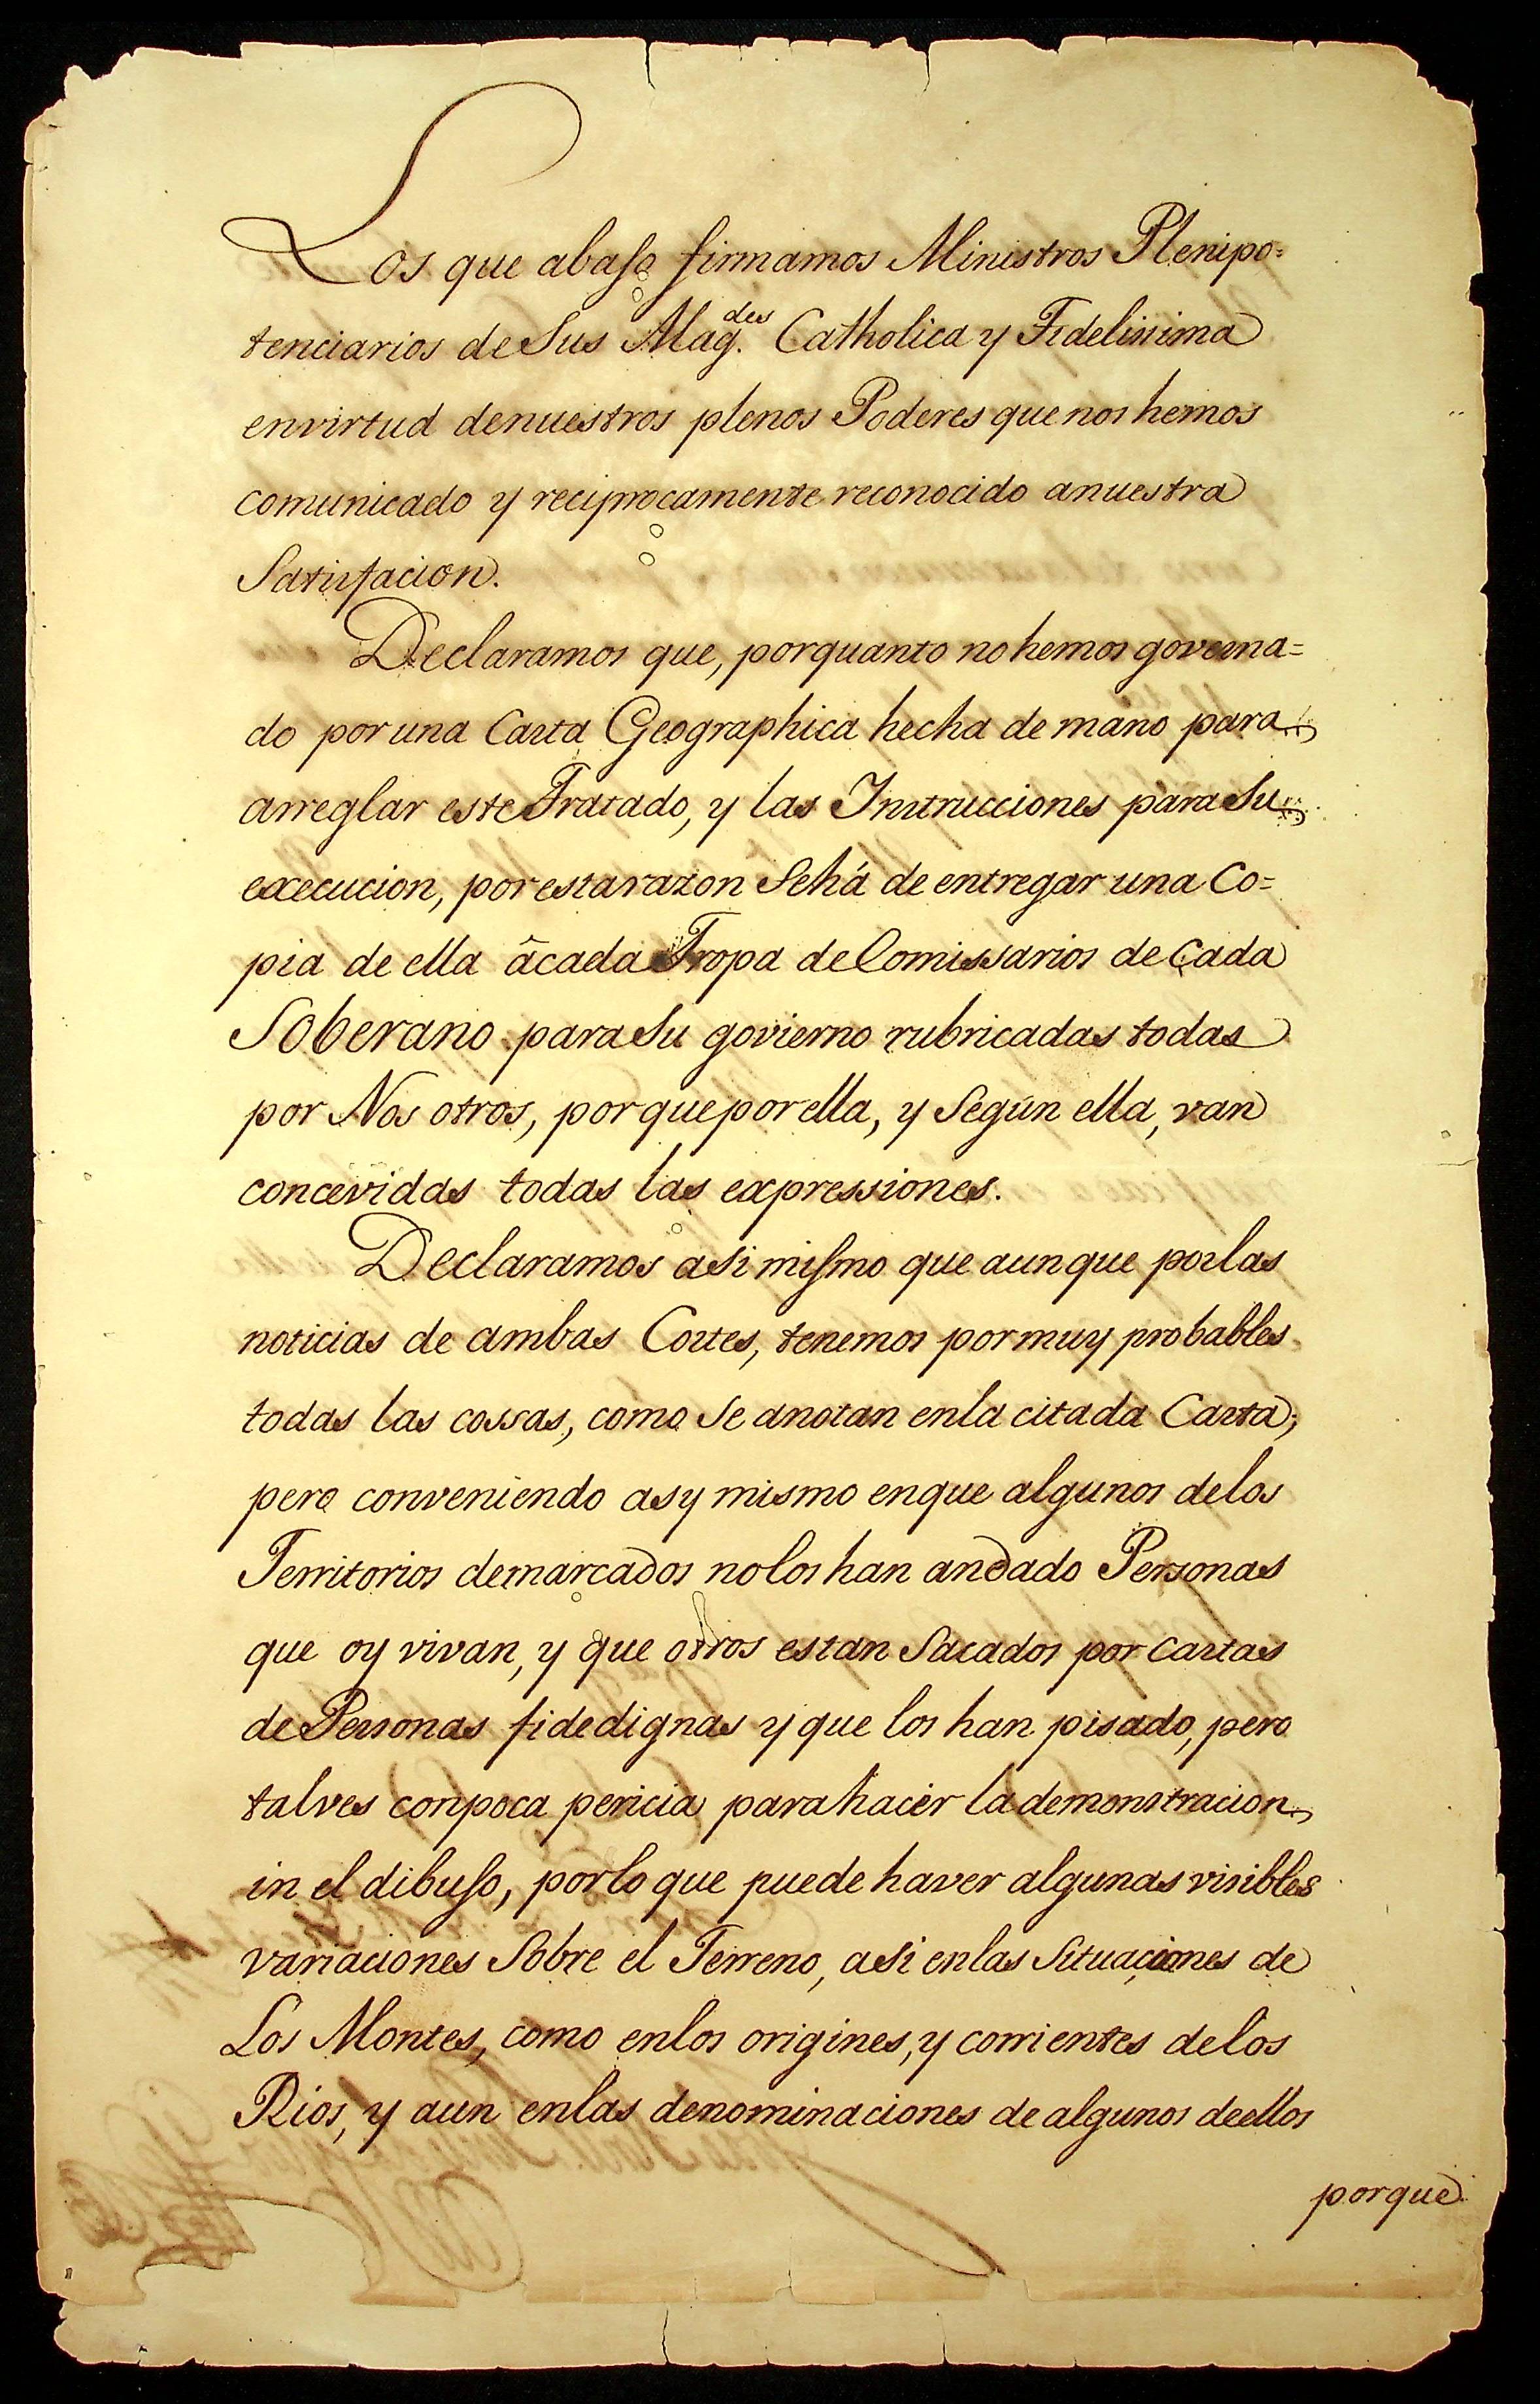 Los que abaso firmamos Ministros Plenipo=
tenciarios de Sus Mag.des Catholica y Fidelissima
envirtud denuestros plenos Poderes que nos hemos
comunicado y reciprocamente reconocido anuestra
Satisfacion.
Declaramos que, porquanto no hemos governa=
do por una Carta Geographica hecha de mano para
arreglar este Tratado, y las Instrucciones para Su
execucion, por esta razon Sehá de entregar una Co=
pia de ella âcada Tropa de Comissarios de Cada
Soberano para Su govierno rubricadas todas
por Nos otros, por que por ella, y Según ella, van
concevidas todas las expressiones.
Declaramos aSi miſmo que aunque por las
noticias de ambas Cortes, tenemos por muy probables
todas las cossas, como Se anotan enla citada Carta;
pero conveniendo asy mismo enque algunos delos
Territorios demarcados nolos han andado Personas
que oy vivan, y que otros estan Sacados por cartas
de Personas fidedignas y que los han pisado, pero
talves conpoca pericia para hacer la demonstracion
in el dibuso, porlo que puede haver algunas visibles
variaciones Sobre el Terreno, aSi enlas Situaciones de
Los Montes, como enlos origines, y corrientes delos
Rios, y aun enlas denominaciones de algunos deellos
porque